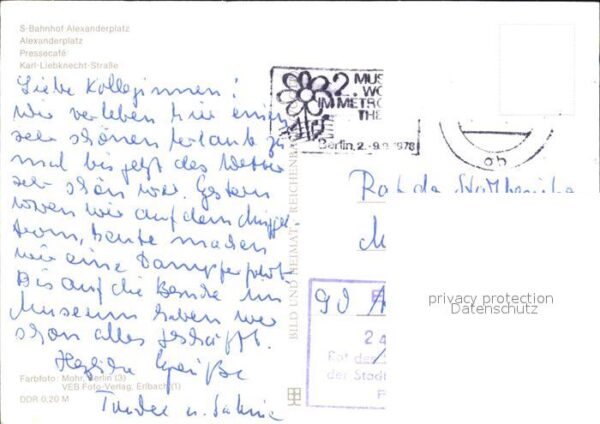 S-Bahnhof Alexanderplatz
Alexanderplatz
Pressecafé
Karl-Liebknecht-Straße
Liebe Kolleginnen!
Wir verleben hier einen
sehr schönen Urlaub zu
mal bis jetzt das Wetter
sehr schön war. Gestern
waren wir auf dem Müggel-
turm, heute machen
wir eine Dampferfahrt.
Bis auf die Besuche im
Museum haben wir
schon alles geschafft.
Herzliche Grüße
u. Sabine
Farbfoto: Mohr, Berlin (3)
VEB Foto-Verlag, Erlbach (1)
DDR 0,20 M
BILD UND HEIMAT REICHENBA
2. MUS
WO
IM METRO
THE
Berlin, 2.-9.9.1978
ob
Rat der Stadtbezirke
M
90
24
Rat des
der Stad
privacy protection
Datenschutz